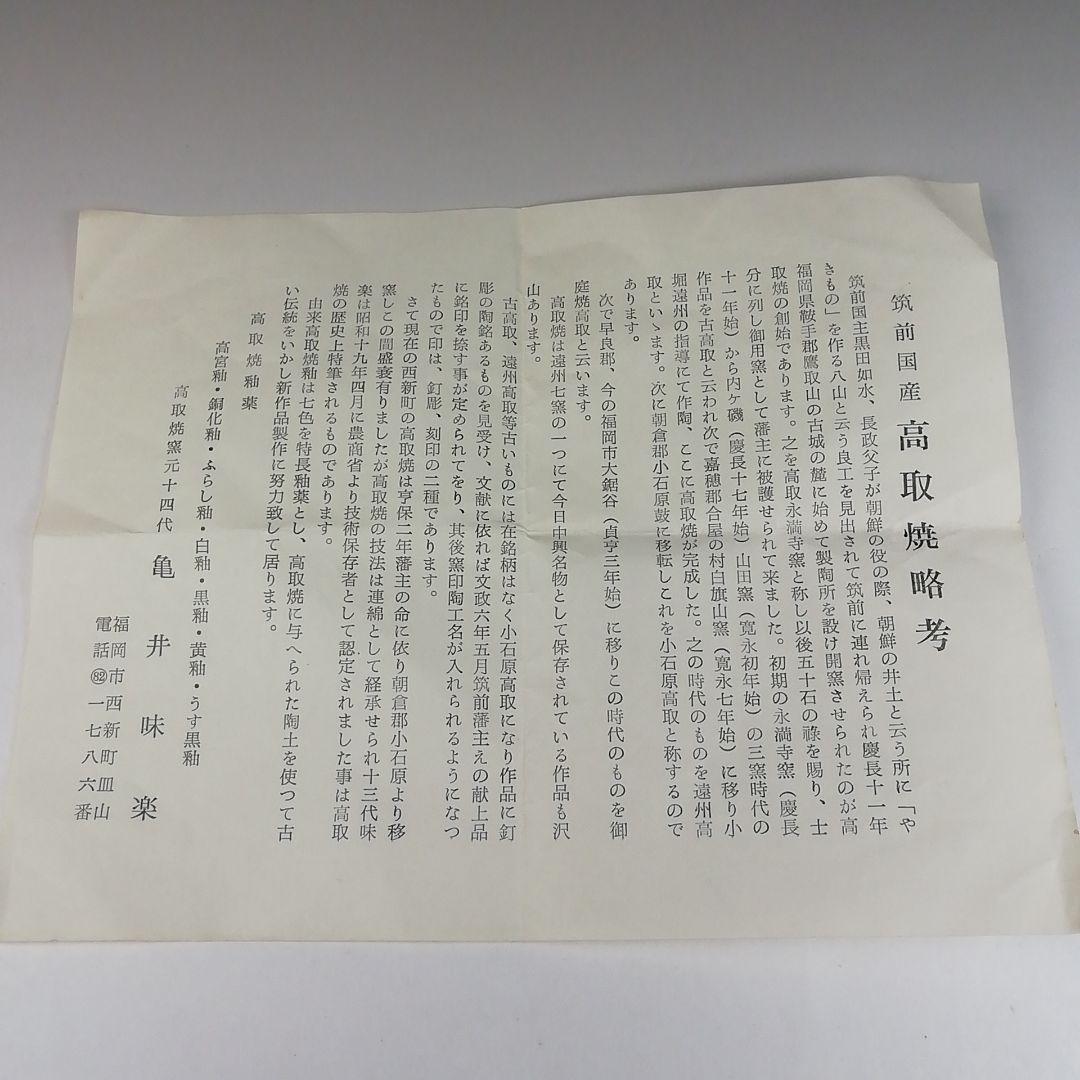 筑前国産 高取焼略考
筑前国主黒田如水、長政父子が朝鮮の役の際、朝鮮の井土と云う所に「や
きもの」を作る八山と云う良工を見出されて筑前に連れ帰えられ慶長十一年
福岡県鞍手郡鷹取山の古城の麓に始めて製陶所を設け開窯させられたのが高
取焼の創始であります。之を高取永満寺窯と称し以後五十石の祿を賜り、士
分に列し御用窯として藩主に被護せられて来ました。初期の永満寺窯(慶長
十一年始)から内ヶ磯(慶長十七年始)山田窯(寛永初年始)の三窯時代の
作品を古高取と云われ次で嘉穂郡合屋の村白旗山窯(寛永七年始)に移り小
堀遠州の指導にて作陶、ここに高取焼が完成した。之の時代のものを遠州高
取といゝます。次に朝倉郡小石原鼓に移転しこれを小石原高取と称するので
あります。
次で早良郡、今の福岡市大鋸谷(貞亨三年始)に移りこの時代のものを御
庭焼高取と云います。
高取焼は遠州七窯の一つにて今日中興名物として保存されている作品も沢
山あります。
古高取、遠州高取等古いものには在銘柄はなく小石原高取になり作品に釘
彫の陶銘あるものを見受け、文献に依れば文政六年五月筑前藩主えの献上品
に銘印を捺す事が定められてをり、其後窯印陶工名が入れられるようになつ
たもので印は、釘彫、刻印の二種であります。
さて現在の西新町の高取焼は亨保二年藩主の命に依り朝倉郡小石原より移
窯しこの間盛衰有りましたが高取焼の技法は連綿として経承せられ十三代味
楽は昭和十九年四月に農商省より技術保存者として認定されました事は高取
焼の歴史上特筆されるものであります。
由来高取焼釉は七色を特長釉薬とし、高取焼に与へられた陶土を使つて古
い伝統をいかし新作品製作に努力致して居ります。
高取焼釉薬
高宮釉・銅化釉・ふらし釉・白釉・黒釉・黄釉・うす黒釉
高取焼窯元十四代 亀井味楽
福岡市西新町皿山
電話㊷一七八六番